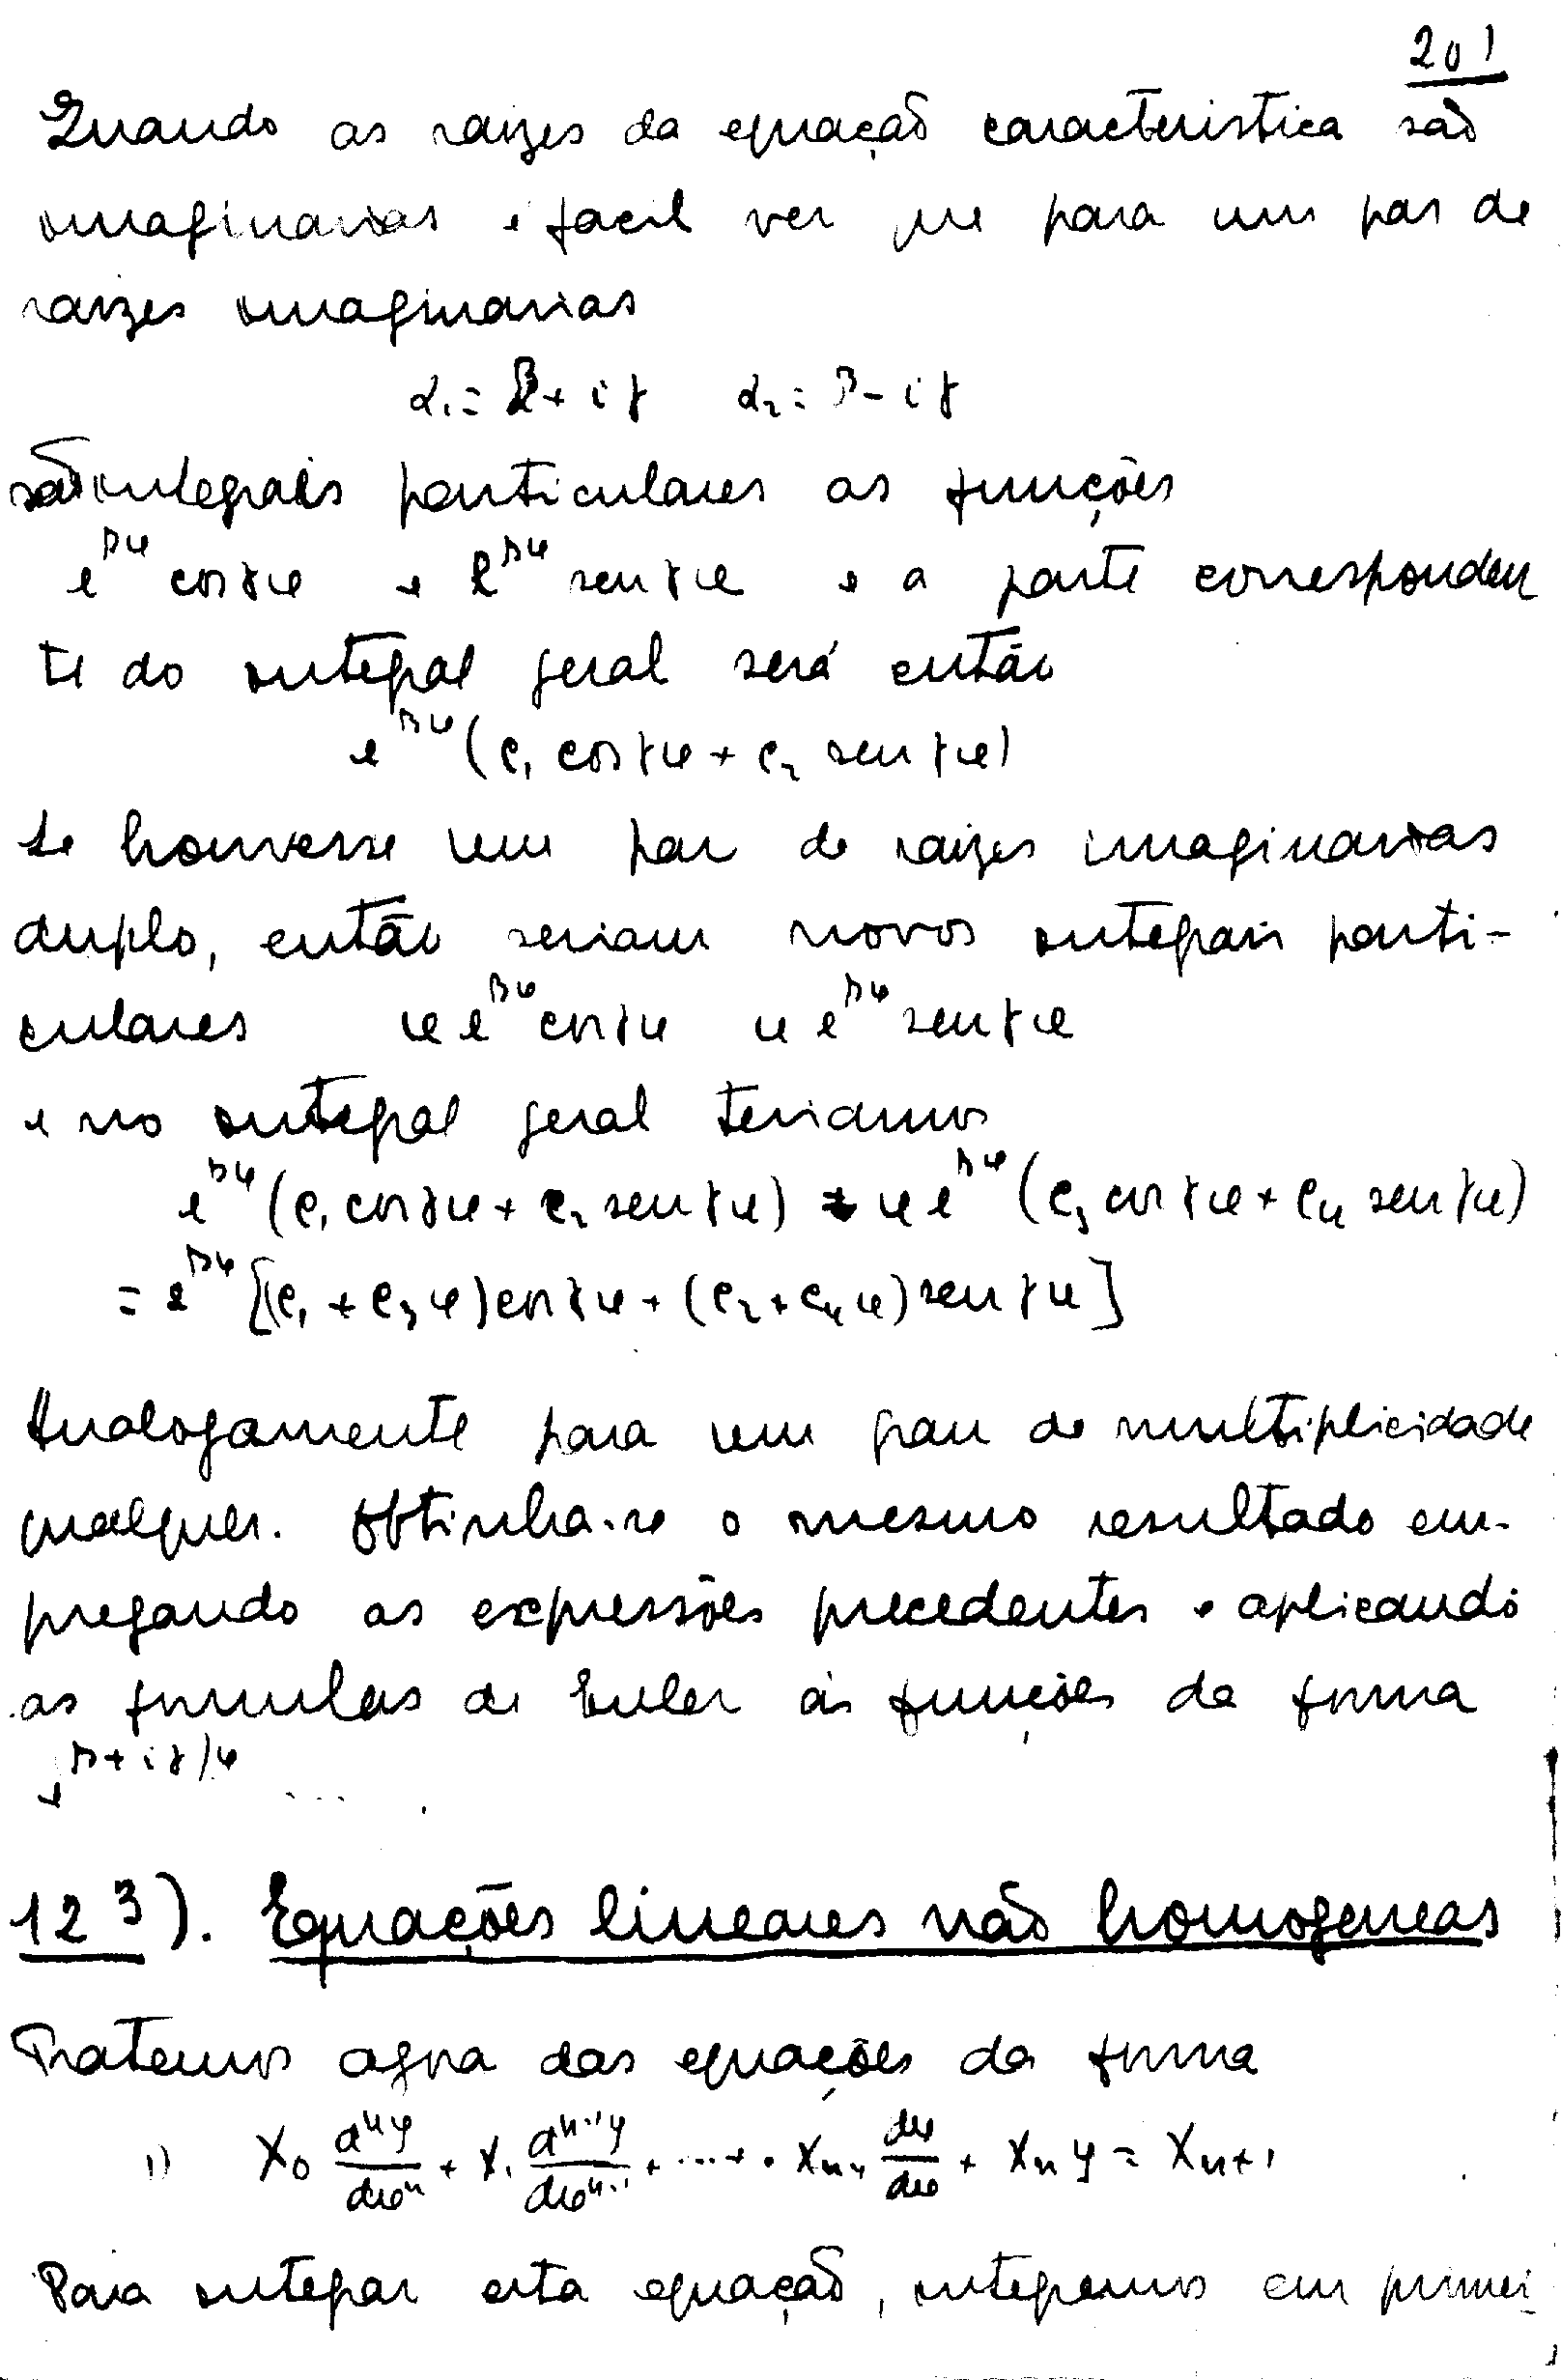 201
Quando as raizes da equação caracteristica são
imaginarias e facil ver que para um par de
raizes imaginarias
α₁ = β + iγ α₂ = β - iγ
são integrais particulares as funções
e^{βx} cos γx e e^{βx} sen γx e a parte corresponden
te do integral geral será então
e^{βx} (c₁ cos γx + c₂ sen γx)
Se houvesse um par de raizes imaginarias
duplo, então seriam novos integrais parti-
culares x e^{βx} cos γx x e^{βx} sen γx
e no integral geral teriamos
e^{βx} (c₁ cos γx + c₂ sen γx) + x e^{βx} (c₃ cos γx + c₄ sen γx)
= e^{βx} [(c₁ + c₃ x) cos γx + (c₂ + c₄ x) sen γx]
Analogamente para um grau de multiplicidade
qualquer. Obtinha-se o mesmo resultado em-
pregando as expressões precedentes e aplicando
as formulas de Euler ás funções da forma
e^{β + iγ)x}
123). Equações lineares não homogeneas
Tratemos agora das equações da forma
1) X₀ dⁿy/dxⁿ + X₁ dⁿ⁻¹y/dxⁿ⁻¹ + ..... + Xₙ₋₁ dy/dx + Xₙ y = Xₙ₊₁
Para integrar esta equação, integremos em primei